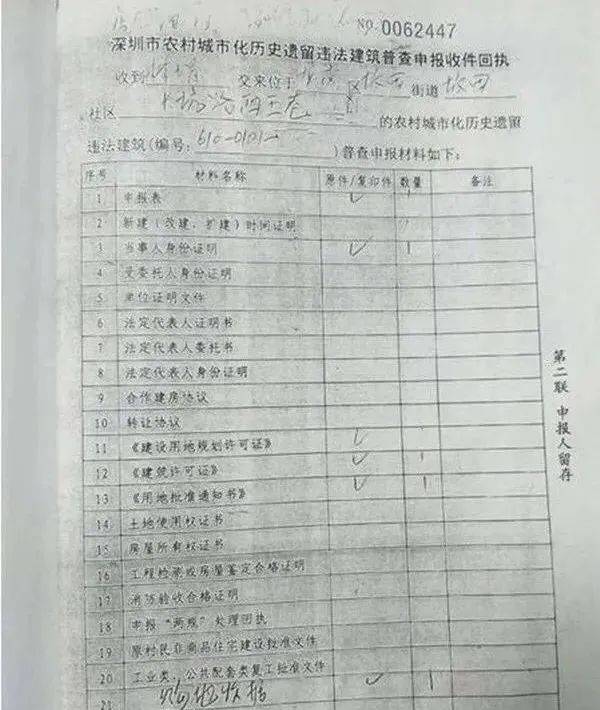 NO. 0062447
深圳市农村城市化历史遗留违法建筑普查申报收件回执
收到 交来位于 区 坂田 街道 坂田
社区 的农村城市化历史遗留
违法建筑(编号: 610-01012 )普查申报材料如下:
序号 材料名称 原件/复印件 数量 备注
1 申报表 ✓ 1
2 新建(改建、扩建)时间证明
3 当事人身份证明 ✓ 1
4 受委托人身份证明
5 单位证明文件
6 法定代表人证明书
7 法定代表人委托书
8 法定代表人身份证明
9 合作建房协议
10 转让协议
11 《建设用地规划许可证》 ✓
12 《建筑许可证》 ✓ 1
13 《用地批准通知书》 ✓ 1
14 土地使用权证书
15 房屋所有权证书
16 工程检测或房屋鉴定合格证明
17 消防验收合格证明
18 申报“两规”处理回执
19 原村民非商品住宅建设批准文件
20 工业类、公共配套类复工批准文件
21 收据 ✓ 1
第二联 申报人留存